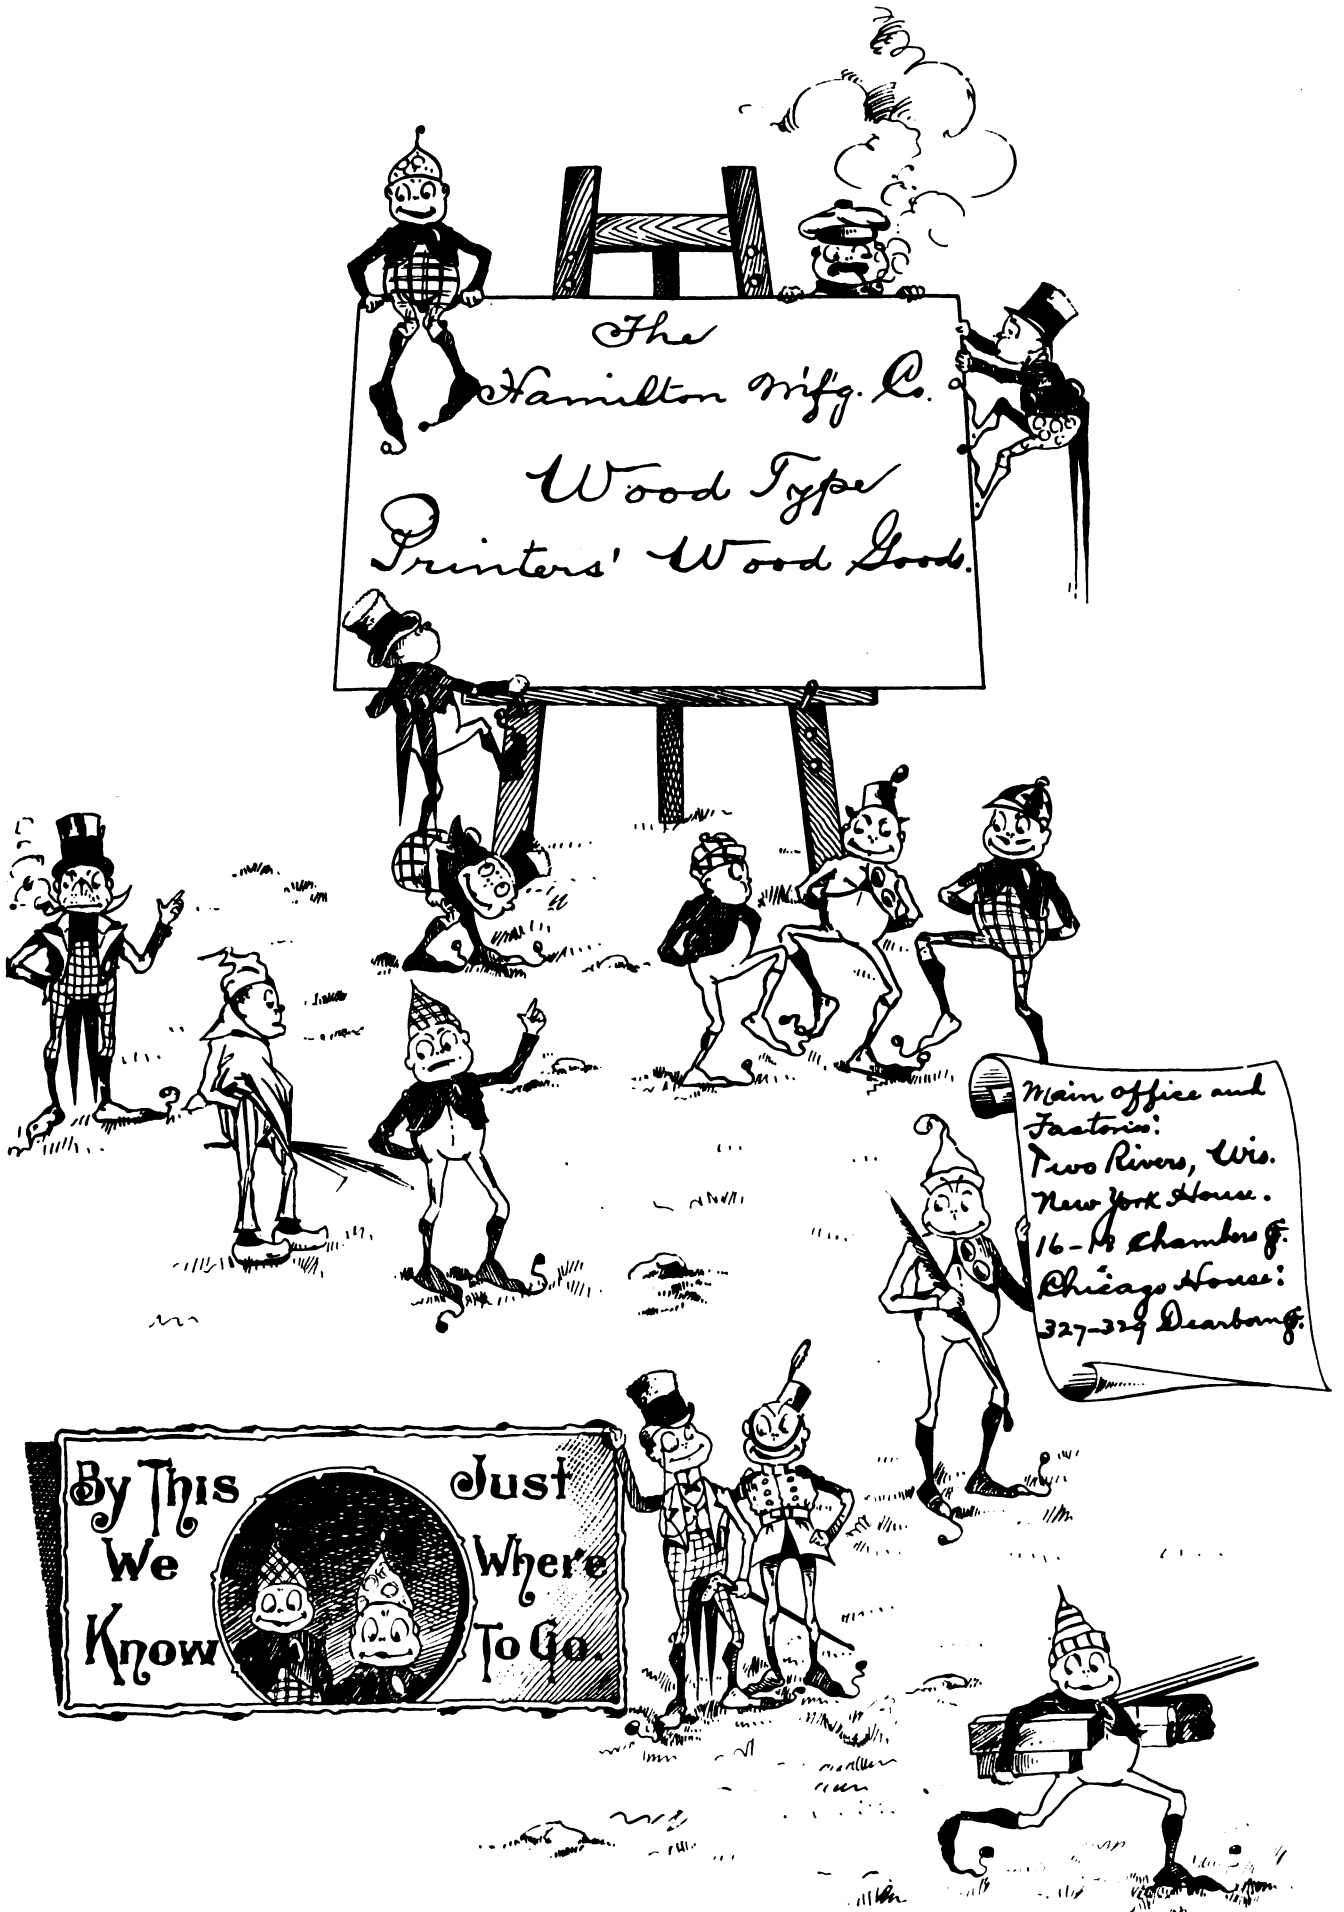 The
Hamilton M'f'g. Co.
Wood Type
Printers' Wood Goods.
Main Office and
Factories:
Two Rivers, Wis.
New York House.
16-18 Chambers St.
Chicago House:
327-329 Dearborn St.
By This
We
Know
Just
Where
To Go.